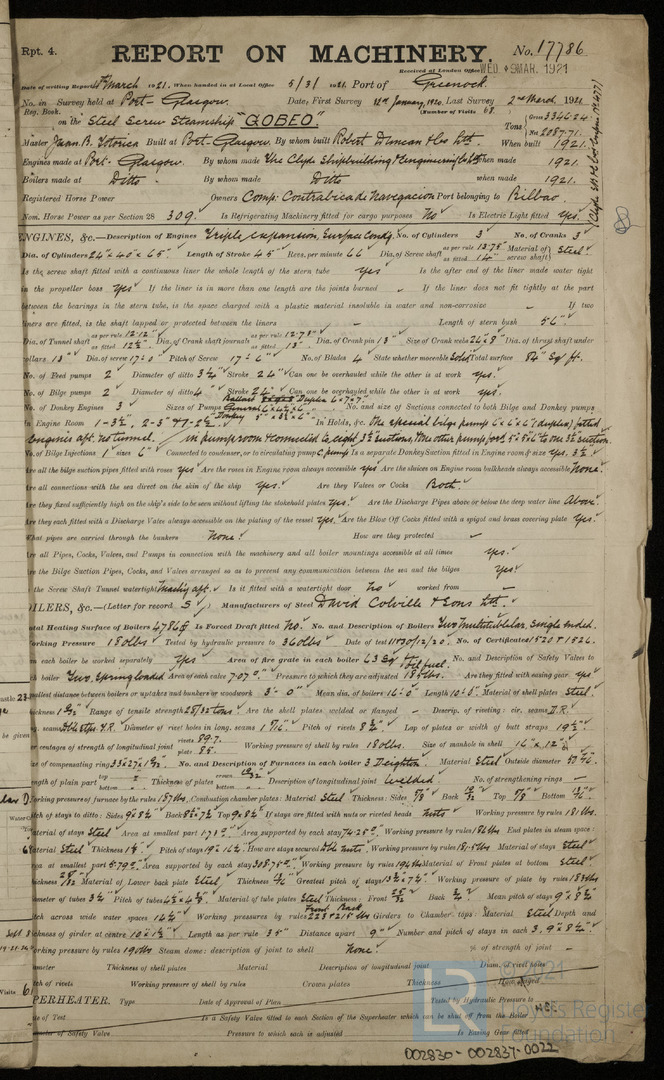 Rpt. 4.
REPORT ON MACHINERY.
No. 17786
Received at London Office WED. 9 MAR. 1921
Date of writing Report 4th March 1921. When handed in at Local Office 5/3/1921 Port of Greenock.
No. in Survey held at Port-Glasgow. Date, First Survey 12th January, 1920. Last Survey 2nd March 1921
Reg. Book. (Number of Visits 68.
on the Steel Screw Steamship "GOBEO" Tons Gross 3346.24 Net 2087.71.
Master Juan B. Ytorica Built at Port-Glasgow. By whom built Robert Duncan & Co Ltd. When built 1921.
Engines made at Port-Glasgow. By whom made The Clyde Shipbuilding & Engineering Co Ltd when made 1921.
Boilers made at Ditto. By whom made Ditto when made 1921.
Registered Horse Power Owners Comp: Contrabica de Navegacion Port belonging to Bilbao.
Nom. Horse Power as per Section 28 309. Is Refrigerating Machinery fitted for cargo purposes No Is Electric Light fitted Yes.
ENGINES, &c.—Description of Engines Triple expansion, Surface Condg. No. of Cylinders 3 No. of Cranks 3
Dia. of Cylinders 24" x 40 x 65. Length of Stroke 45" Revs. per minute 66 Dia. of Screw shaft as per rule 13.75 as fitted 14" Material of screw shaft Steel.
Is the screw shaft fitted with a continuous liner the whole length of the stern tube yes Is the after end of the liner made water tight
in the propeller boss yes If the liner is in more than one length are the joints burned – If the liner does not fit tightly at the part
between the bearings in the stern tube, is the space charged with a plastic material insoluble in water and non-corrosive – If two
liners are fitted, is the shaft lapped or protected between the liners – Length of stern bush 56"
Dia. of Tunnel shaft as per rule 12.12" as fitted 12½ Dia. of Crank shaft journals as per rule 12.73" as fitted 13" Dia. of Crank pin 13" Size of Crank webs 26 x 8" Dia. of thrust shaft under
collars 13" Dia. of screw 17-0" Pitch of Screw 17-6" No. of Blades 4 State whether moveable Solid Total surface 84 Sq ft.
No. of Feed pumps 2 Diameter of ditto 3¾" Stroke 24" Can one be overhauled while the other is at work yes.
No. of Bilge pumps 2 Diameter of ditto 4" Stroke 24" Can one be overhauled while the other is at work yes.
No. of Donkey Engines 3 Sizes of Pumps Ballast Duplex 6 x 7 x 7" General 6 x 4½ x 6" Donkey No. and size of Suctions connected to both Bilge and Donkey pumps
In Engine Room 1-3½", 2-3" & 1-2½" In Holds, &c. One special bilge pump 6 x 6 x 6" (duplex) fitted
Engines aft. no tunnel. in pump room & connected to eight 3½ suctions, one other pump
No. of Bilge Injections 1 sizes 6" Connected to condenser, or to circulating pump C. pump Is a separate Donkey Suction fitted in Engine room & size Yes, 3½"
Are all the bilge suction pipes fitted with roses yes Are the roses in Engine room always accessible yes Are the sluices on Engine room bulkheads always accessible None.
Are all connections with the sea direct on the skin of the ship yes. Are they Valves or Cocks Both.
Are they fixed sufficiently high on the ship's side to be seen without lifting the stokehold plates yes. Are the Discharge Pipes above or below the deep water line Above.
Are they each fitted with a Discharge Valve always accessible on the plating of the vessel yes. Are the Blow Off Cocks fitted with a spigot and brass covering plate yes.
What pipes are carried through the bunkers None. How are they protected –
Are all Pipes, Cocks, Valves, and Pumps in connection with the machinery and all boiler mountings accessible at all times yes.
Are the Bilge Suction Pipes, Cocks, and Valves arranged so as to prevent any communication between the sea and the bilges yes.
Is the Screw Shaft Tunnel watertight Machy aft. Is it fitted with a watertight door no worked from –
BOILERS, &c.—(Letter for record S) Manufacturers of Steel David Colville & Sons Ltd.
Total Heating Surface of Boilers 4786 Is Forced Draft fitted No. No. and Description of Boilers Two multitubular, single ended.
Working Pressure 180 lbs. Tested by hydraulic pressure to 360 lbs Date of test 11 & 30/12/20. No. of Certificates 1520 & 1526.
Can each boiler be worked separately Yes Area of fire grate in each boiler 63 Sq ft oil fuel. No. and Description of Safety Valves to
each boiler Two, spring loaded Area of each valve 7.07" Pressure to which they are adjusted 185 lbs. Are they fitted with easing gear yes
Smallest distance between boilers or uptakes and bunkers or woodwork 3'-0" Mean dia. of boilers 16'-0" Length 10'-0" Material of shell plates Steel.
Thickness Range of tensile strength 28/32 tons Are the shell plates welded or flanged – Descrip. of riveting: cir. seams D.R.
long. seams Dble straps T.R. Diameter of rivet holes in long. seams 1 7/16" Pitch of rivets 8¾" Lap of plates or width of butt straps 19½"
Per centages of strength of longitudinal joint rivets 89.7. plate 85. Working pressure of shell by rules 180 lbs. Size of manhole in shell 16" x 12"
Size of compensating ring No. and Description of Furnaces in each boiler 3 Deighton Material Steel Outside diameter
Length of plain part top bottom Thickness of plates crown bottom 19/32 Description of longitudinal joint Welded No. of strengthening rings –
Working pressure of furnace by the rules 187 lbs. Combustion chamber plates: Material Steel Thickness: Sides 5/8 Back 19/32 Top 5/8 Bottom ¾"
Pitch of stays to ditto: Sides 9 x 8¼ Back 8½ x 7½ Top 9 x 8½" If stays are fitted with nuts or riveted heads Nuts Working pressure by rules 181 lbs.
Material of stays Steel Area at smallest part 1.71" Area supported by each stay 74.25" Working pressure by rules 186 lbs End plates in steam space:
Material Steel Thickness 1⅛ Pitch of stays 19 x 16¼ How are stays secured Dbl nuts Working pressure by rules 181.5 lbs Material of stays Steel
Area at smallest part 5.79" Area supported by each stay 308.75" Working pressure by rules 194 lbs Material of Front plates at bottom Steel.
Thickness Material of Lower back plate Steel Thickness Greatest pitch of stays 13½ x 7½" Working pressure of plate by rules 183 lbs
Diameter of tubes 3¼" Pitch of tubes 4½ x 4½ Material of tube plates Steel Thickness: Front Back ¾" Mean pitch of stays 9 x 8¾"
Pitch across wide water spaces 14¼" Working pressures by rules Front 225 Back 215 lbs Girders to Chamber tops: Material Steel Depth and
thickness of girder at centre 10 x 1½" Length as per rule 35" Distance apart 9" Number and pitch of stays in each 3, 9 x 8¼".
Working pressure by rules 190 lbs Steam dome: description of joint to shell None. % of strength of joint –
Diameter Thickness of shell plates Material Description of longitudinal joint Diam. of rivet holes
Pitch of rivets Working pressure of shell by rules Crown plates Thickness How stayed
SUPERHEATER. Type. Date of Approval of Plan Tested by Hydraulic Pressure to
Date of Test Is a Safety Valve fitted to each Section of the Superheater which can be shut off from the Boiler
Diameter of Safety Valve Pressure to which each is adjusted Is Easing Gear fitted
© 2021
Lloyd's Register
Foundation
002830-002837-0022